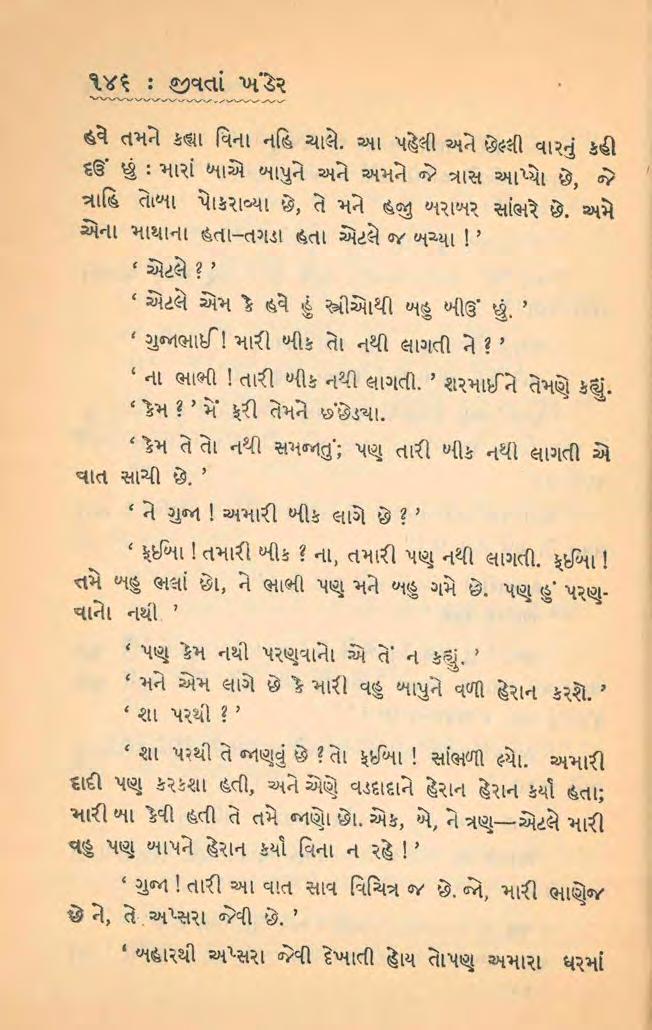 ૧૪૬ : જીવતાં ખંડેર
હવે તમને કહ્યા વિના નહિ ચાલે. આ પહેલી અને છેલ્લી વારનું કહી
દઉં છું : મારાં બાએ બાપુને અને અમને જે ત્રાસ આપ્યો છે, જે
ત્રાહિ તોબા પોકરાવ્યા છે, તે મને હજી બરાબર સાંભરે છે. અમે
એના માથાના હતા–તગડા હતા એટલે જ બચ્યા ! ’
‘ એટલે ? ’
‘ એટલે એમ કે હવે હું સ્ત્રીઓથી બહુ બીઉં છું. ’
‘ ગુજાભાઈ ! મારી બીક તો નથી લાગતી ને ? ’
‘ ના ભાભી ! તારી બીક નથી લાગતી. ’ શરમાઈને તેમણે કહ્યું.
‘ કેમ ? ’ મેં ફરી તેમને છંછેડ્યા.
‘ કેમ તે તો નથી સમજાતું; પણ તારી બીક નથી લાગતી એ
વાત સાચી છે. ’
‘ ને ગુજા ! અમારી બીક લાગે છે ? ’
‘ ફઈબા ! તમારી બીક ? ના, તમારી પણ નથી લાગતી. ફઈબા !
તમે બહુ ભલાં છો, ને ભાભી પણ મને બહુ ગમે છે. પણ હું પરણ-
વાનો નથી. ’
‘ પણ કેમ નથી પરણવાનો એ તેં ન કહ્યું. ’
‘ મને એમ લાગે છે કે મારી વહુ બાપુને વળી હેરાન કરશે. ’
‘ શા પરથી ? ’
‘ શા પરથી તે જાણવું છે ? તો ફઈબા ! સાંભળી લ્યો. અમારી
દાદી પણ કરકશા હતી, અને એણે વડદાદાને હેરાન હેરાન કર્યા હતા;
મારી બા કેવી હતી તે તમે જાણો છો. એક, બે, ને ત્રણ—એટલે મારી
વહુ પણ બાપને હેરાન કર્યા વિના ન રહે ! ’
‘ ગુજા ! તારી આ વાત સાવ વિચિત્ર જ છે. જો, મારી ભાણેજ
છે ને, તે અપ્સરા જેવી છે. ’
‘ બહારથી અપ્સરા જેવી દેખાતી હોય તોપણ અમારા ઘરમાં